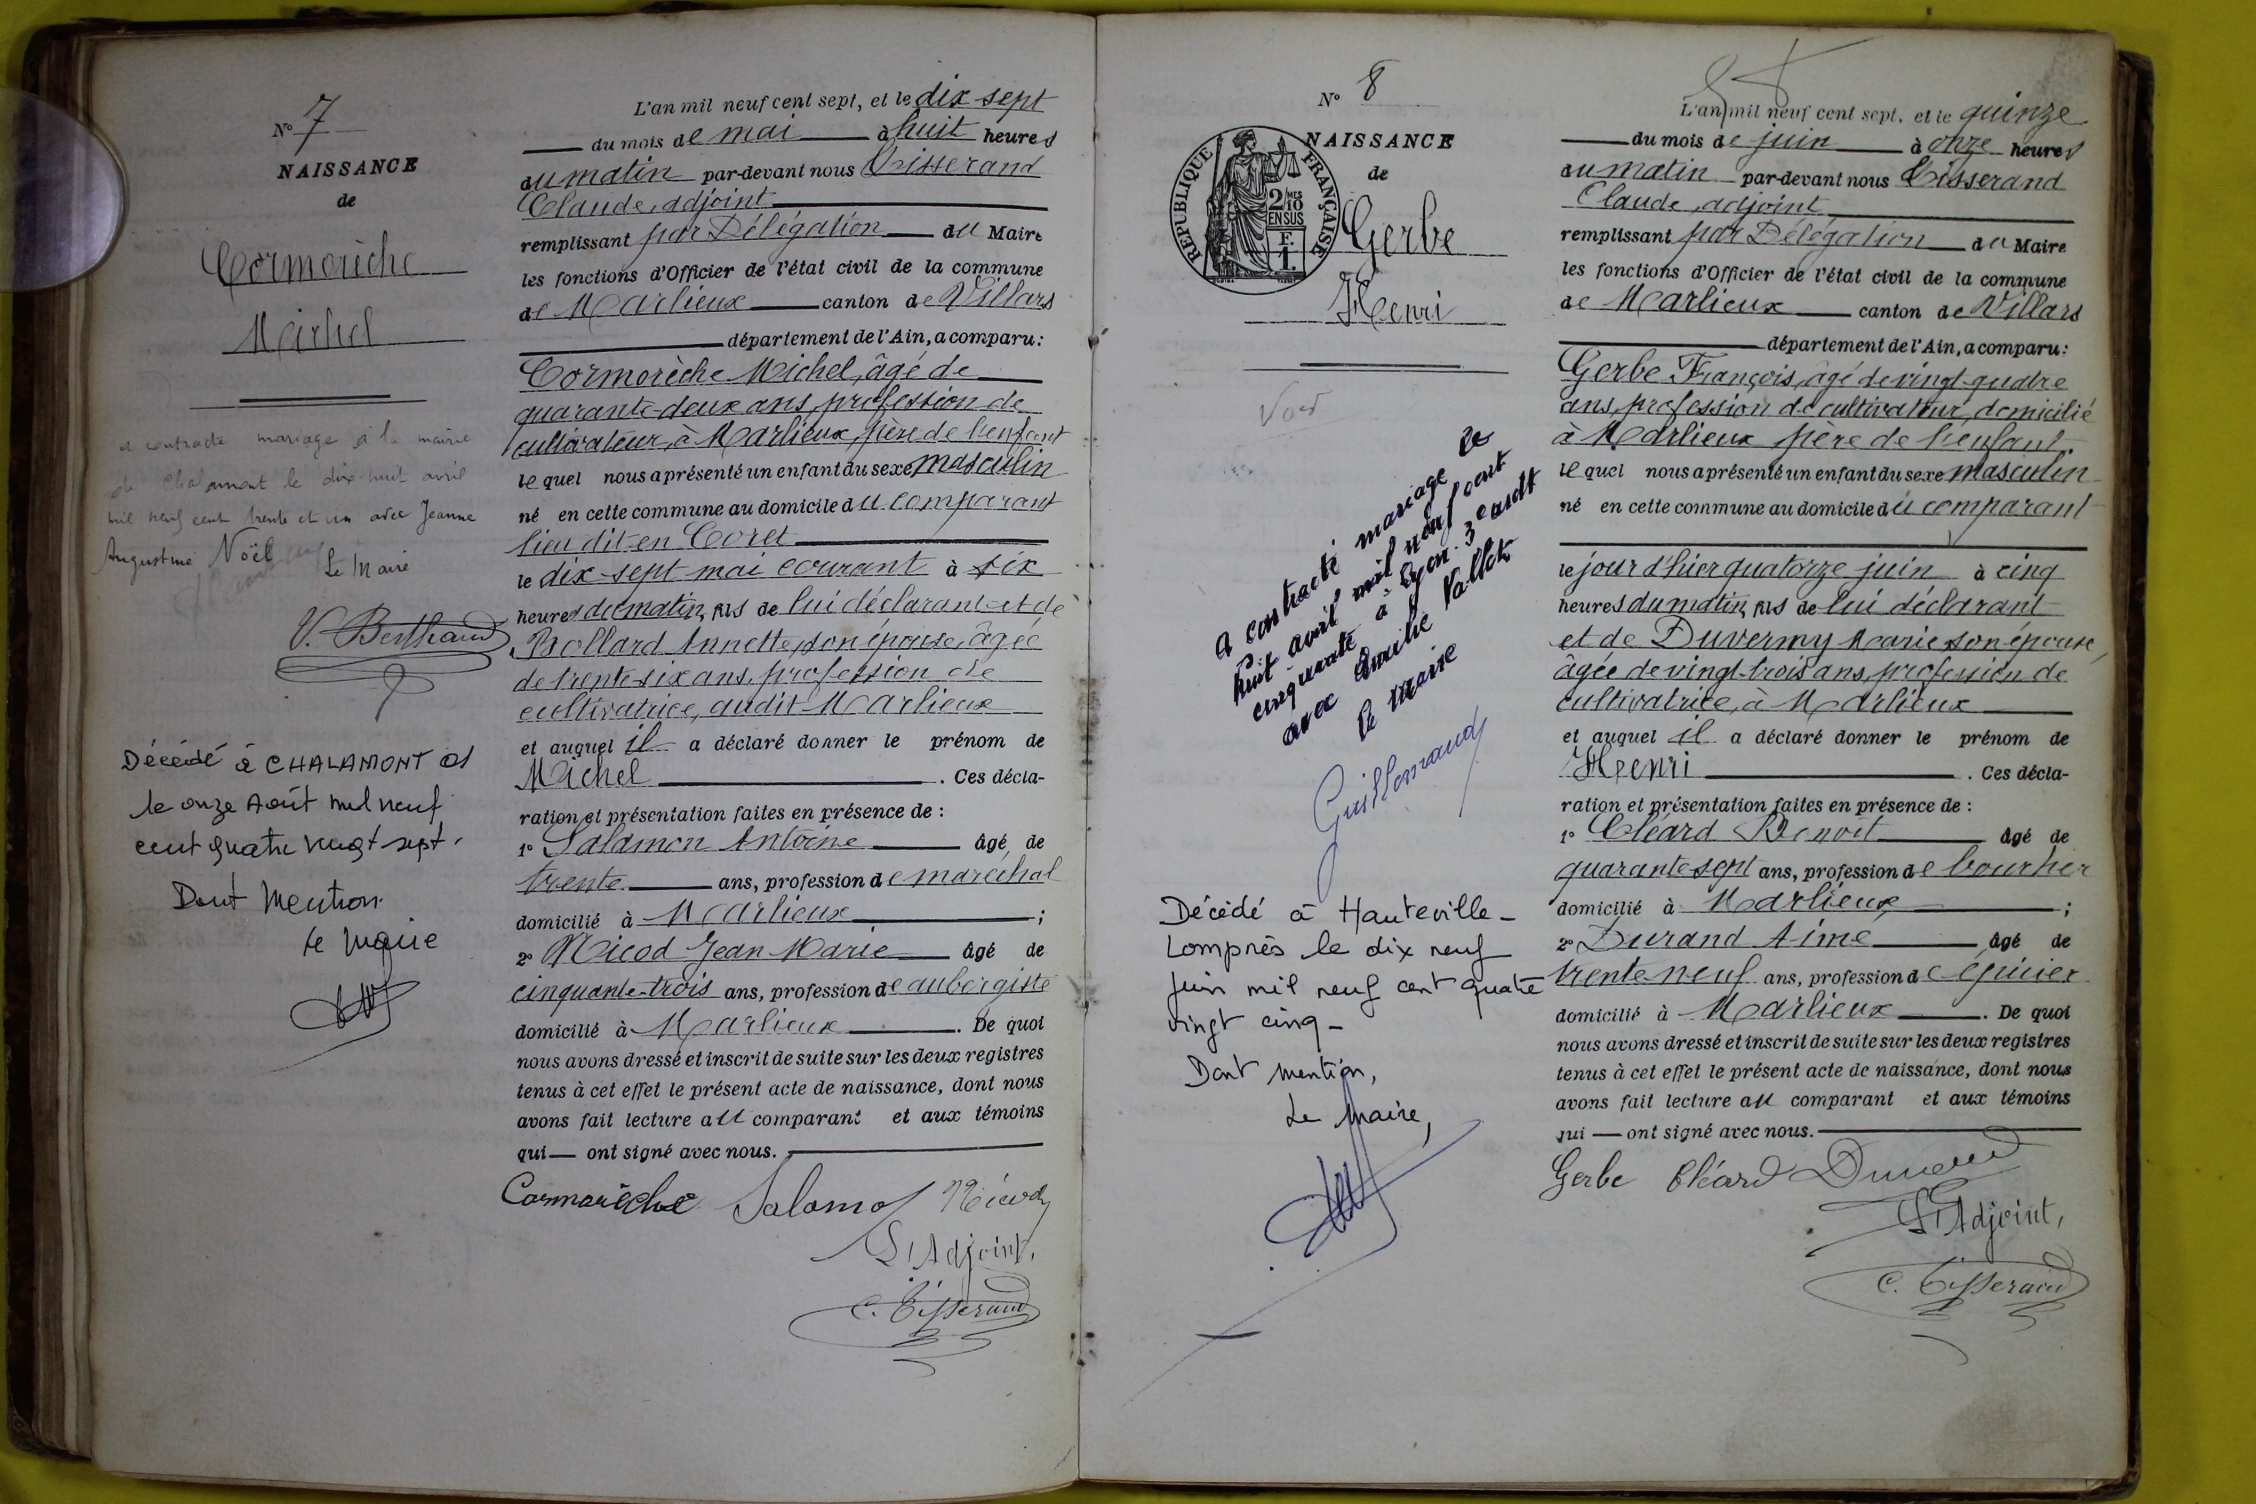 N° 7
NAISSANCE
de
Cormorèche
Michel
a contracté mariage à la mairie
de Chalamont le dix-huit avril
mil neuf cent trente et un avec Jeanne
Augustine Noël
Le Maire
V. Berthaud
Décédé à CHALAMONT 01
le onze Août mil neuf
cent quatre vingt sept.
Dont Mention
Le Maire
L'an mil neuf cent sept, et le dix-sept
du mois de mai à huit heures
du matin par-devant nous Tisserand
Claude, adjoint
remplissant par Délégation du Maire
les fonctions d'Officier de l'état civil de la commune
de Marlieux canton de Villars
département de l'Ain, a comparu:
Cormorèche Michel, âgé de
quarante-deux ans, profession de
cultivateur, à Marlieux, père de l'enfant
lequel nous a présenté un enfant du sexe masculin
né en cette commune au domicile du comparant
lieu dit en Coret
le dix-sept mai courant à six
heures du matin, fils de lui déclarant et de
Bollard Annette, son épouse, âgée
de trente-six ans, profession de
cultivatrice, audit Marlieux
et auquel il a déclaré donner le prénom de
Michel . Ces décla-
ration et présentation faites en présence de :
1° Salamon Antoine âgé de
trente ans, profession de maréchal
domicilié à Marlieux ;
2° Nicod Jean Marie âgé de
cinquante-trois ans, profession de aubergiste
domicilié à Marlieux . De quoi
nous avons dressé et inscrit de suite sur les deux registres
tenus à cet effet le présent acte de naissance, dont nous
avons fait lecture au comparant et aux témoins
qui — ont signé avec nous.
Cormorèche Salamon Nicod
L'Adjoint,
C. Tisserand
N° 8
NAISSANCE
de
REPUBLIQUE FRANÇAISE
2 MES 10
EN SUS
F. 1.
Gerbe
Henri
A contracté mariage le
huit avril mil neuf cent
cinquante à Lyon. 3 eardt
avec Emilie Vallet
le Maire
Guillemaud
Décédé à Hauteville-
Lompnès le dix neuf
Juin mil neuf cent quatre
vingt cinq -
Dont mention,
Le Maire,
L'an mil neuf cent sept, et le quinze
du mois de juin à onze heures
du matin par-devant nous Tisserand
Claude, adjoint
remplissant par Délégation du Maire
les fonctions d'Officier de l'état civil de la commune
de Marlieux canton de Villars
département de l'Ain, a comparu:
Gerbe François, âgé de vingt-quatre
ans, profession de cultivateur, domicilié
à Marlieux père de l'enfant.
lequel nous a présenté un enfant du sexe masculin
né en cette commune au domicile du comparant
le jour d'hier quatorze juin à cinq
heures du matin, fils de lui déclarant
et de Duvermy Marie son épouse,
âgée de vingt-trois ans, profession de
cultivatrice, à Marlieux
et auquel il a déclaré donner le prénom de
Henri . Ces décla-
ration et présentation faites en présence de :
1° Cléard Benoît âgé de
quarante-sept ans, profession de boucher
domicilié à Marlieux ;
2° Durand Aimé âgé de
trente-neuf ans, profession d'épicier
domicilié à Marlieux . De quoi
nous avons dressé et inscrit de suite sur les deux registres
tenus à cet effet le présent acte de naissance, dont nous
avons fait lecture au comparant et aux témoins
qui — ont signé avec nous.
Gerbe Cléard Durand
L'Adjoint,
C. Tisserand